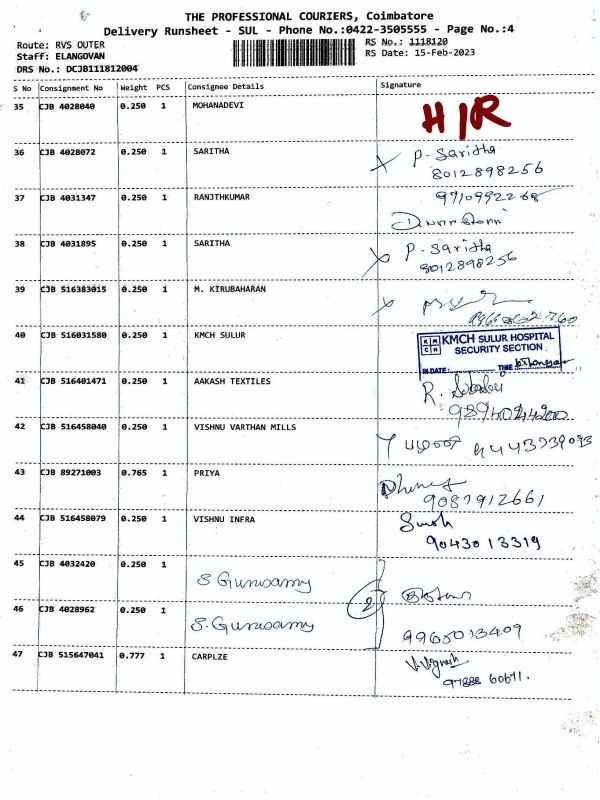 THE PROFESSIONAL COURIERS, Coimbatore
Delivery Runsheet - SUL - Phone No.:0422-3505555 - Page No.:4
Route: RVS OUTER RS No.: 1118120
Staff: ELANGOVAN RS Date: 15-Feb-2023
DRS No.: DCJB111812004
S No Consignment No Weight PCS Consignee Details Signature
35 CJB 4028040 0.250 1 MOHANADEVI
36 CJB 4028072 0.250 1 SARITHA P. Saritha
8012898256
37 CJB 4031347 0.250 1 RANJTHKUMAR
38 CJB 4031895 0.250 1 SARITHA P. Saritha
8012898256
39 CJB 516383015 0.250 1 M. KIRUBAHARAN
40 CJB 516031580 0.250 1 KMCH SULUR KMCH SULUR HOSPITAL
SECURITY SECTION
IN DATE: TIME
41 CJB 516401471 0.250 1 AAKASH TEXTILES R.
42 CJB 516458040 0.250 1 VISHNU VARTHAN MILLS
43 CJB 89271003 0.765 1 PRIYA
9087912661
44 CJB 516458079 0.250 1 VISHNU INFRA
9043013319
45 CJB 4032420 0.250 1 S Gurusamy
46 CJB 4028962 0.250 1 S. Gurusamy 2
9965013409
47 CJB 515647041 0.777 1 CARPLZE V. Vignesh